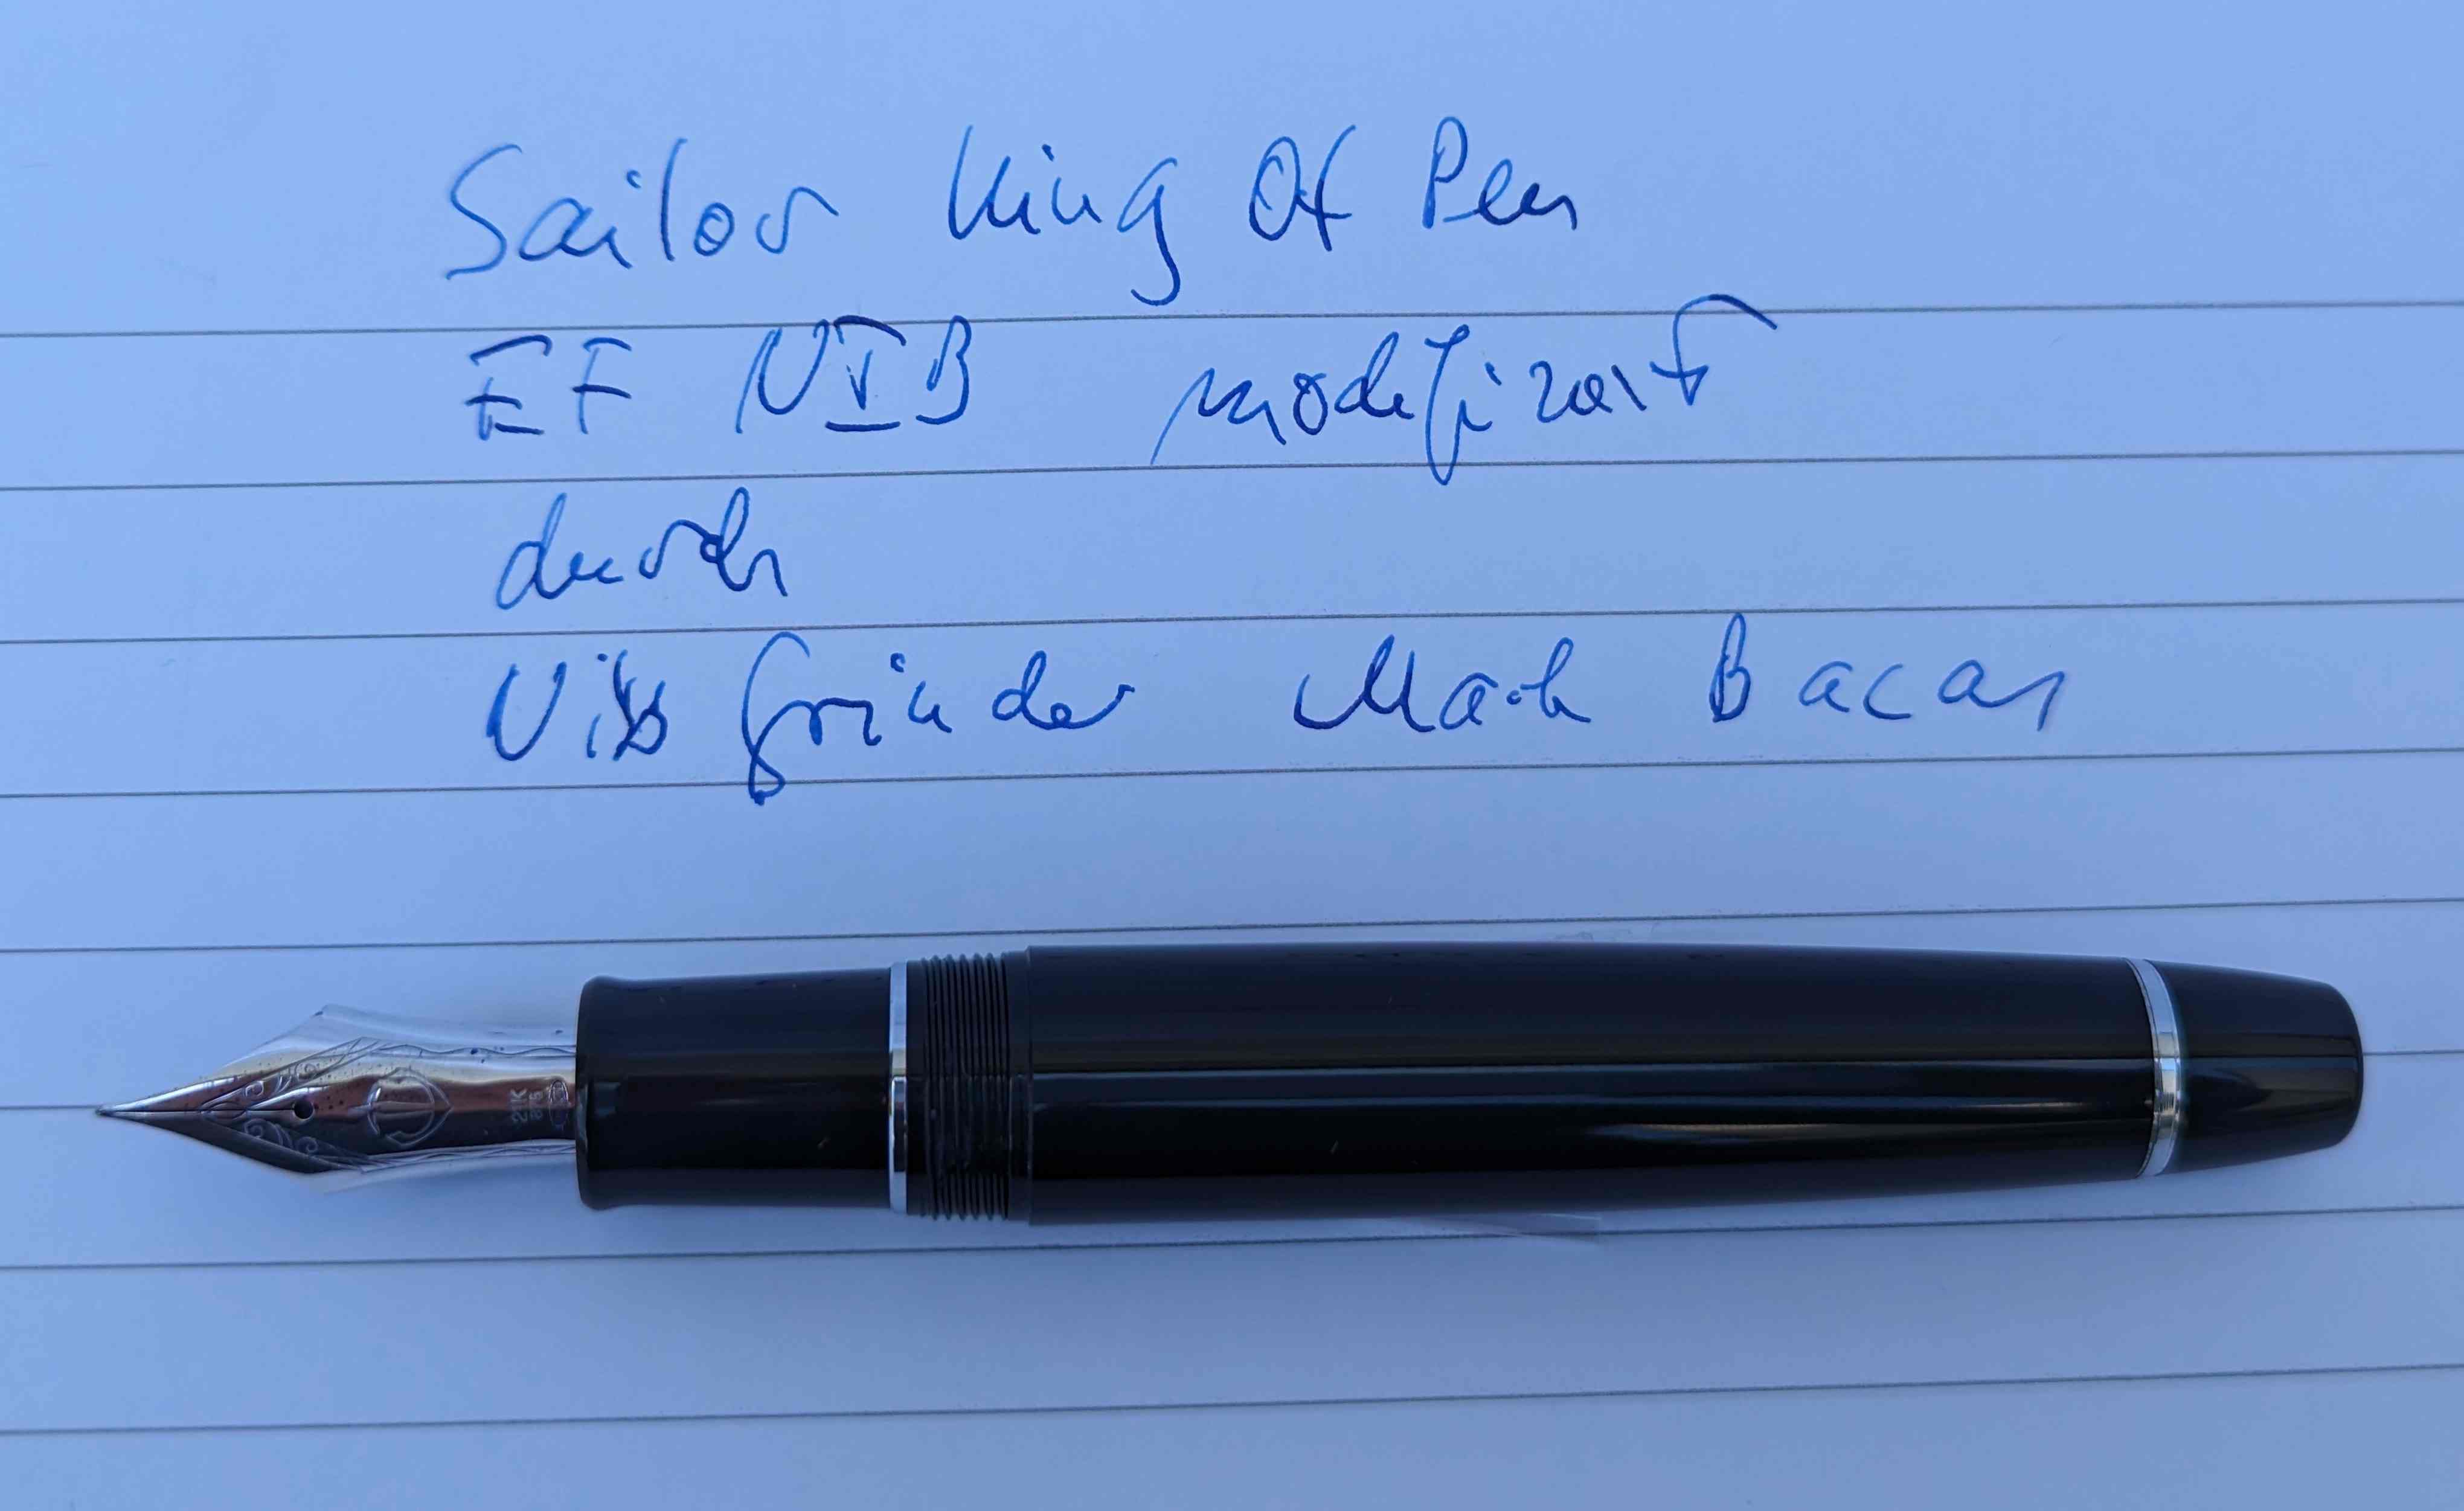 Sailor King Of Pen
EF NIB modifiziert
durch
Nib Grinder Mark Bacas
21K
875